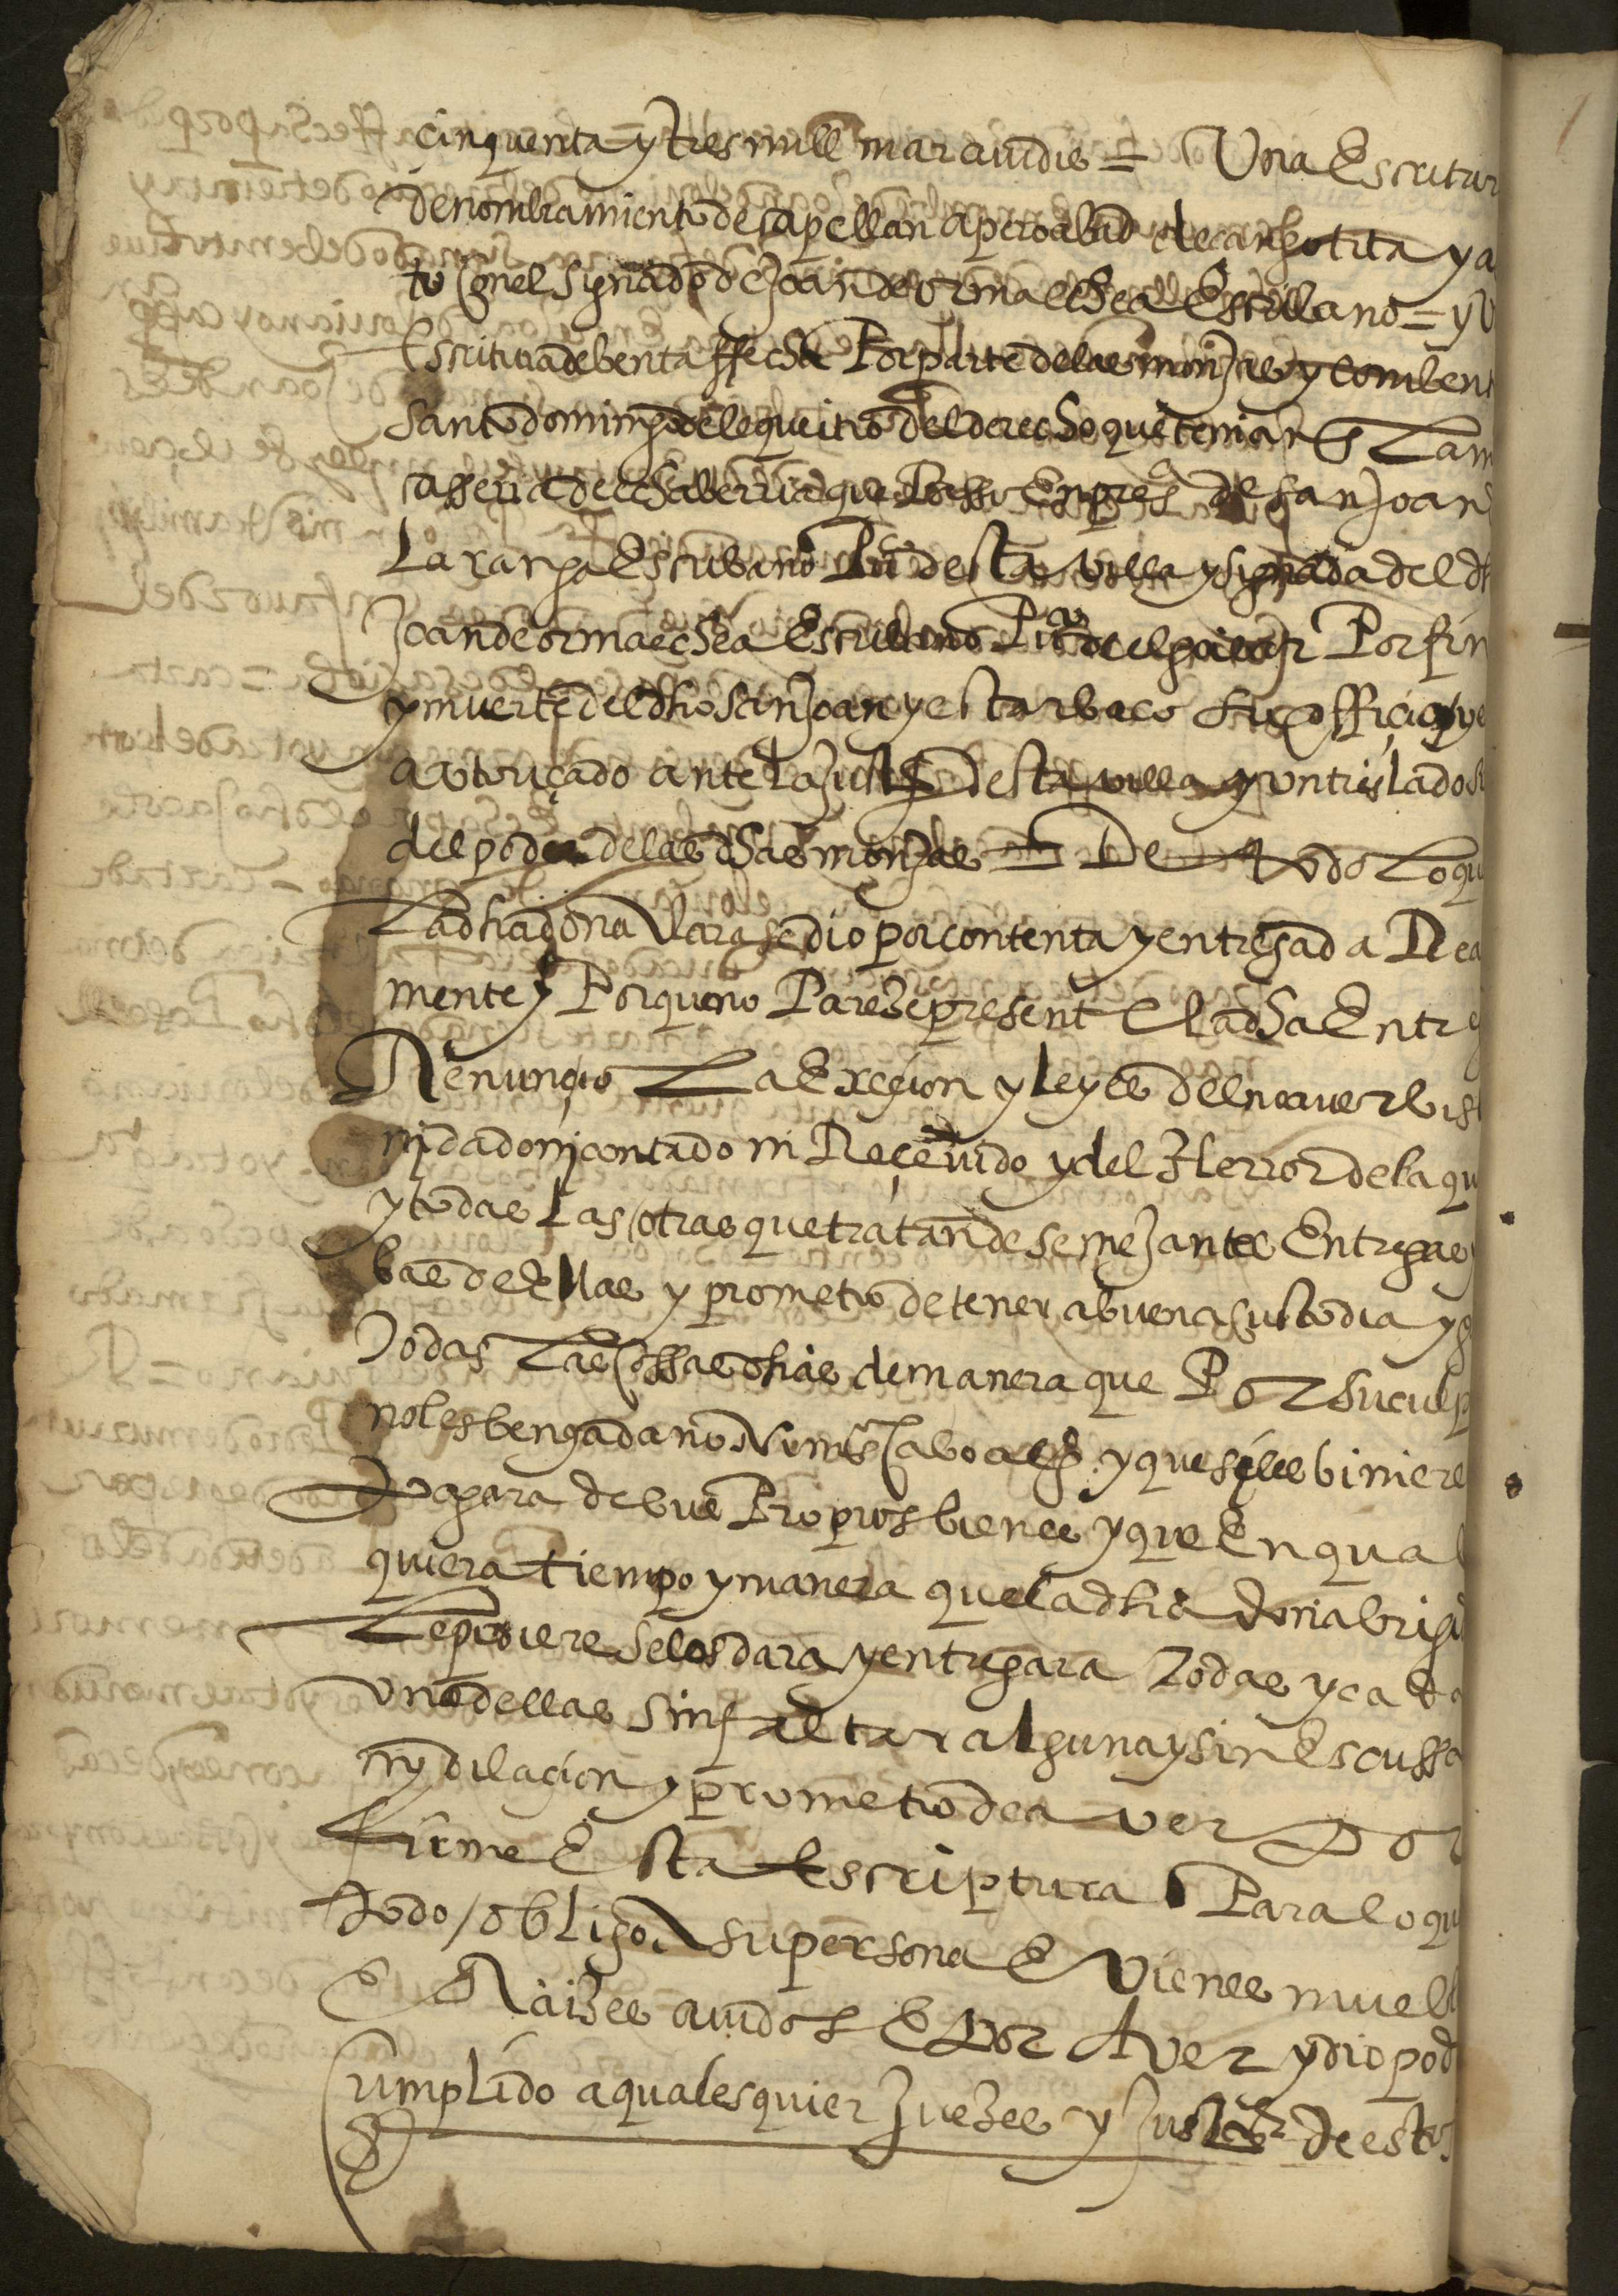 cinquenta y tres mill maravidis = Una Escritur
de nombramiento de capellan a pero abad de cangotita y a
to con el signado de Joan de ormaechea Escrivano = y V
Escritura de benta ffecha Por parte de las monjas y combent
santo domingo de lequeitio del derecho que tenian
casseria de echaberria que Passo En pres.a de san Joan d
Laranga Escrivano Pu.co desta villa y signada del dh
Joan de ormaechea Escrivano Por fin
y muerte del dho san Joan y estar baco su officio y
autoriçado ante la Just.a desta villa y un traslado
del poder de las dhas monjas = De todo Lo qu
La dha doña Clara se dio por contenta y entregada Rea
mente y Porque no Pareze present La dha Entreg
Renunçio La Exceçion y leyes del no aver bist
ni dado ni contado ni Reçevido y del Herror de la qu
y todas Las otras que tratan de semejantes Entregas
bas de Ellas y prometio de tener a buena custodia y g
Todas Las Cossas dhas de manera que Por su culp
no les benga daño ni menos Cabo alg.o y que si les biniere
Pagara de sus Propios bienes y que En qual
quiera tiempo y manera que la dha doña brigi
Le pidiere se los dara y entregara Todas y cada
una dellas sin faltar alguna y sin Escussa
ny dilaçion y prometio de aver Por
firme Esta Escriptura Para lo qu
todo / obligo su persona E Vienes muebl
E Raizes avidos E Por Aver y dio pod
Cumplido a qualesquier Juezes y Just.as de estos